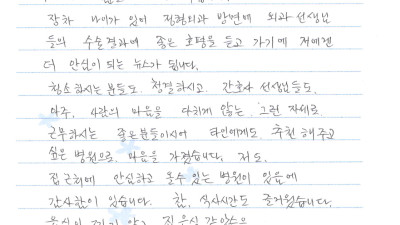 장차 나이가 있어 정형외과 방면에 외과 선생님
들의 수술결과에 좋은 호평을 듣고 가기에 저에겐
더 안심이 되는 뉴스가 됩니다.
청소하시는 분들도. 청결하시고. 간호사 선생님들도.
아주. 사람의 마음을 다치게 않는. 그런 자세로.
근무하시는 좋은분들이시어 타인에게도 추천해주고
싶은 병원으로. 마음을 가졌습니다. 저도.
집근처에 안심하고 올수 있는 병원이 있음에
감사함이 있습니다. 참, 식사시간도 즐거웠습니다.
음식이 짜지 않고